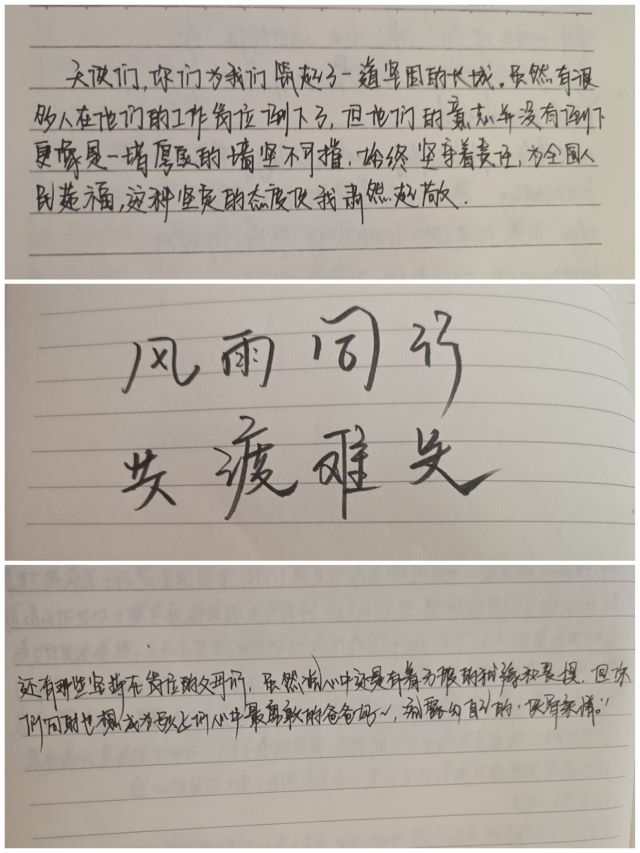 天使们,你们为我们筑起了一道坚固的长城。虽然有很
多人在他们的工作岗位倒下了,但他们的意志并没有倒下
更像是一堵厚厚的墙坚不可摧,始终坚守着责任,为全国人
民造福,这种坚定的态度使我肃然起敬.
风雨同行
共渡难关
还有那些坚守在岗位的父母们,虽然心中还是有着万般的和畏惧,但你
们同时也想成为孩子们心中最勇敢的爸爸妈~,自己的,